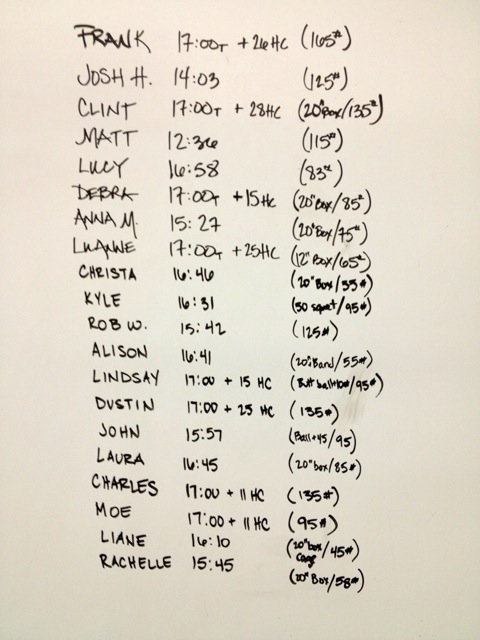 FRANK 17:00T + 26HC (165#)
JOSH H. 14:03 (125#)
CLINT 17:00T + 28HC (20" Box/135#)
MATT 12:36 (115#)
LUCY 16:58 (83#)
DEBRA 17:00T + 15HC (20" Box/85#)
ANNA M. 15:27 (20" Box/75#)
LUANNE 17:00T + 25HC (12" Box/65#)
CHRISTA 16:46 (20" Box/55#)
KYLE 16:31 (50 squat/95#)
ROB W. 15:42 (125#)
ALISON 16:41 (20"/Band/55#)
LINDSAY 17:00 + 15 HC (Butt ball+10#/95#)
DUSTIN 17:00 + 25 HC (135#)
JOHN 15:57 (Ball+45/95)
LAURA 16:45 (20" box/85#)
CHARLES 17:00 + 11 HC (135#)
MOE 17:00 + 11 HC (95#)
LIANE 16:10 (20" box/45#)
RACHELLE 15:45 (20" Box/58#)